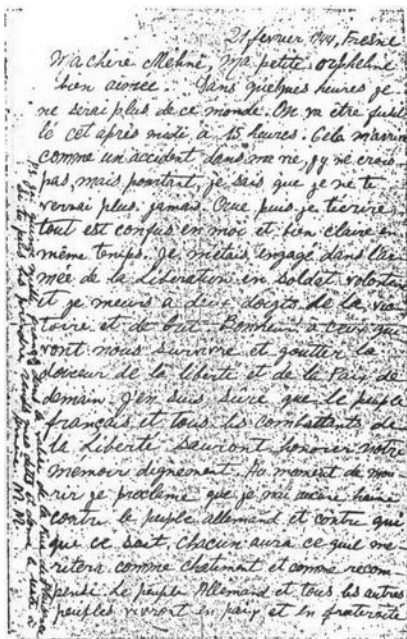 21 fevrier 1944, Fresne
Ma chère Meline, ma petite orpheline
bien aimée. Dans quelques heures je
ne serai plus de ce monde. On va être fusil
lé cet après midi à 15 heures. Cela m'arrive
comme un accident dans ma vie, j'y ne crois
pas, mais pourtant, je sais que je ne te
verrai plus jamais. Que puis-je t'écrire,
tout est confus en moi et bien claire en
même temps. Je m'etais engagé dans l'ar
mée de la Liberation en soldat volontaire
et je meurs à deux doigts de la vic
toire et de but. Bonheur à ceux qui
vont nous survivre et goutter la
douceur de la liberté et de la Paix de
demain. J'en suis sûre que le peuple
français et tous les combattants de
la Liberté sauront honorer notre
memoir dignement. Au moment de mou
rir je proclame que je n'ai aucune haine
contre le peuple allemand et contre qui
que ce soit, chacun aura ce qu'il me
ritera comme chatiment et comme recom
pense. Le peuple Allemand et tous les autres
peuples vivront en paix et en fraternité
francs dans la valise de la rue de Plaisance
Si tu peus les prendre rends mes dettes et donne le reste à
M. M.